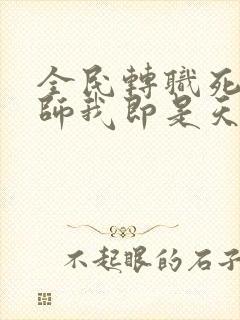 全民轉職死
師我即是天
不起眼的石子